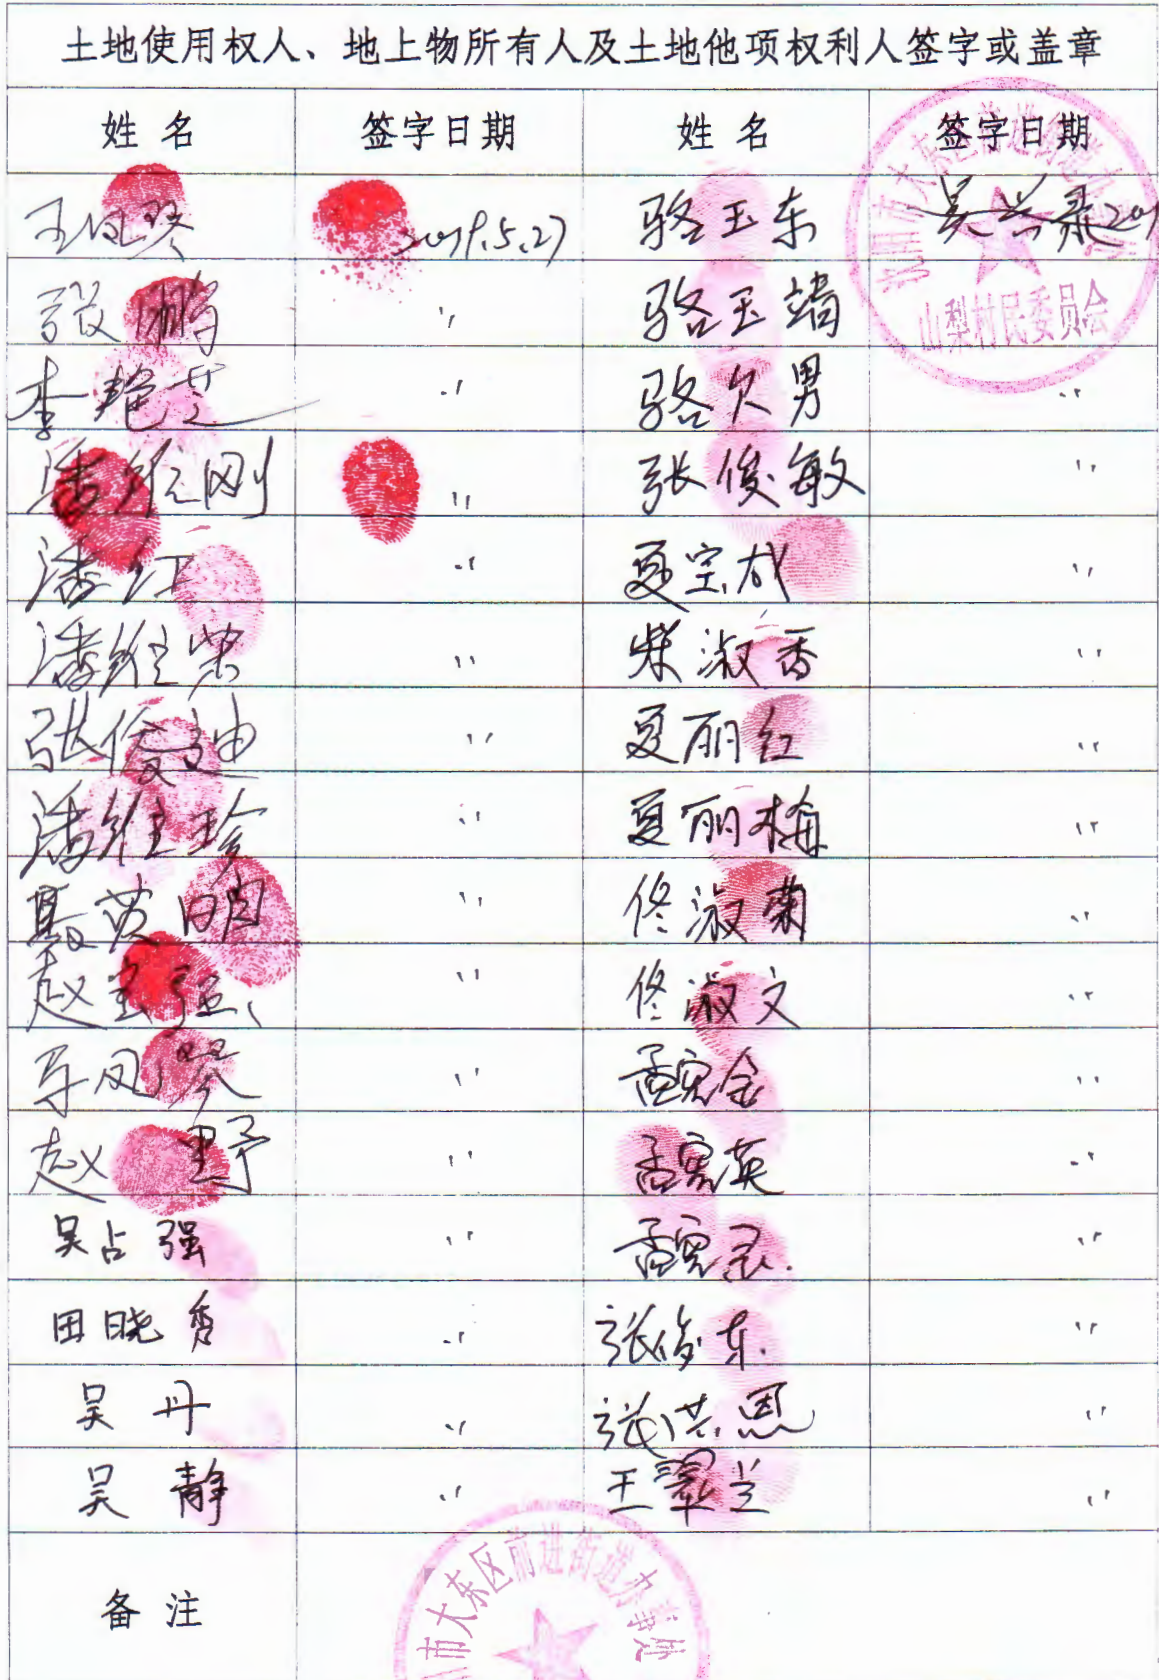 土地使用权人、地上物所有人及土地他项权利人签字或盖章
姓名 签字日期 姓名 签字日期
王凤琴 2019.5.27 骆玉东 吴兴泰 201
张鹏 〃 骆玉靖
李艳芝 〃 骆欠男 〃
潘维刚 〃 张俊敏 〃
潘红 〃 夏宝成 〃
潘维荣 〃 柴淑香 〃
张俊迪 〃 夏丽红 〃
潘维珍 〃 夏丽梅 〃
聂英明 〃 佟淑菊 〃
赵宝强 〃 佟淑文 〃
凤琴 〃 孟宪金 〃
赵野 〃 孟宪英 〃
吴占强 〃 孟宪 〃
田晓秀 〃 张俊东 〃
吴丹 〃 张洪恩 〃
吴静 〃 王翠兰 〃
备注
市大东区前进街道办事处
山梨村民委员会